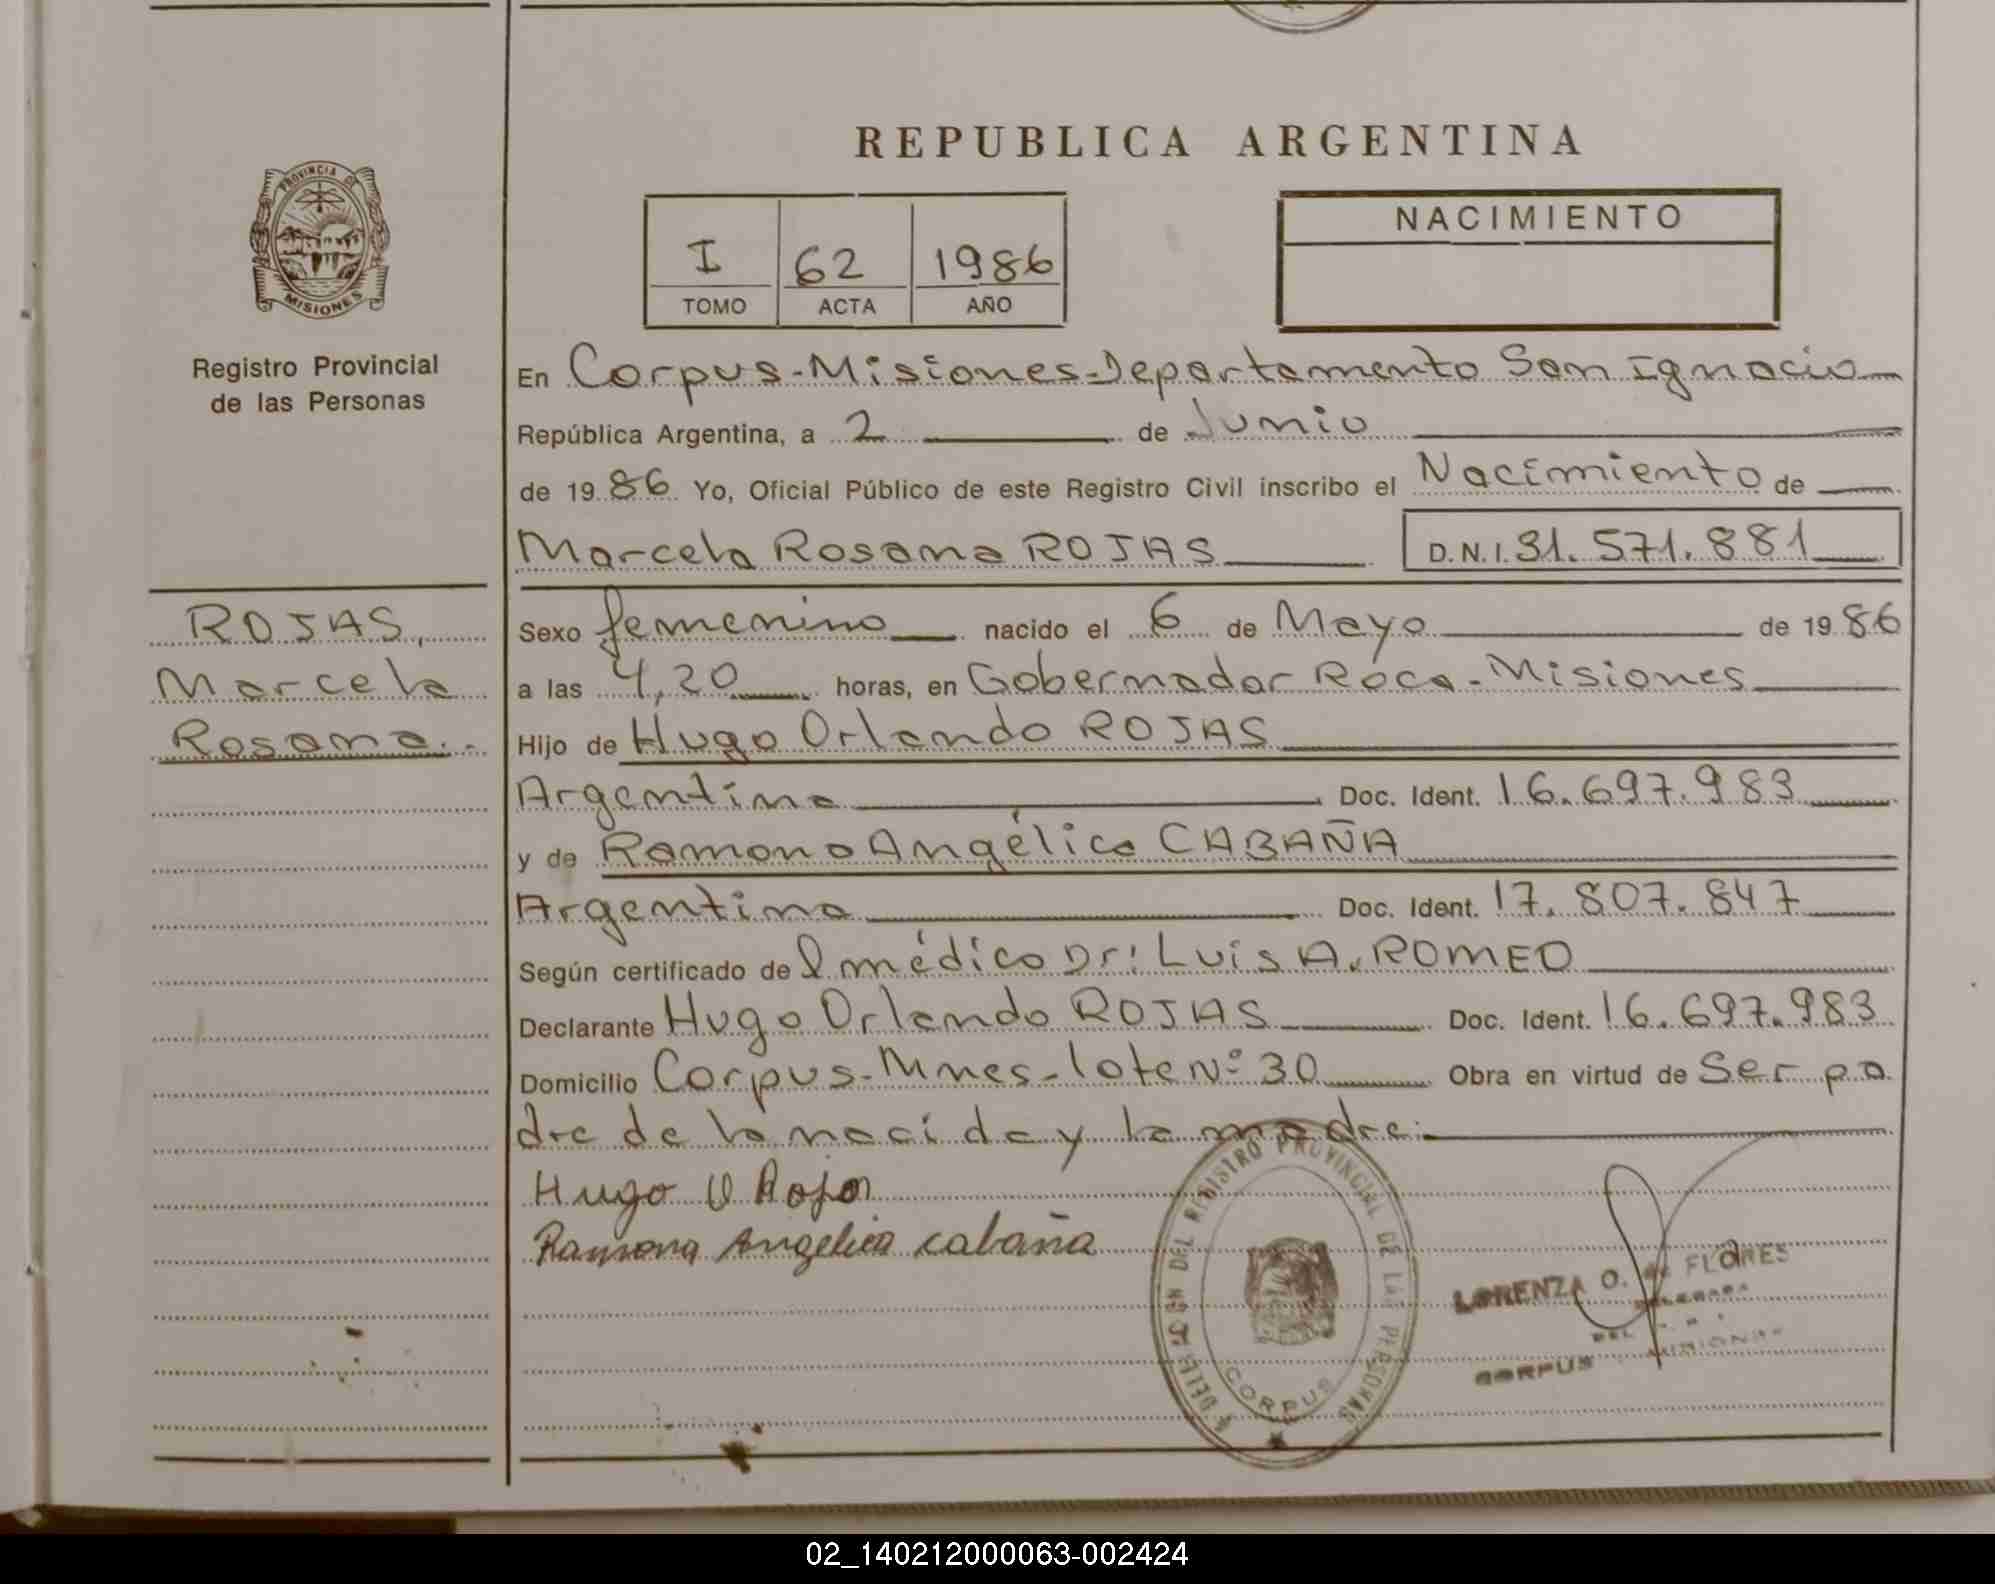 REPUBLICA ARGENTINA
PROVINCIA DE
MISIONES
Registro Provincial
de las Personas
I 62 1986
TOMO ACTA AÑO
NACIMIENTO
En Corpus-Misiones-Departamento San Ignacio
República Argentina, a 2 de Junio
de 1986 Yo, Oficial Público de este Registro Civil inscribo el Nacimiento de
Marcela Rosana ROJAS D.N.I. 31.571.881
ROJAS,
Marcela
Rosana.-
Sexo femenino nacido el 6 de Mayo de 1986
a las 4,20 horas, en Gobernador Roca-Misiones
Hijo de Hugo Orlando ROJAS
Argentina Doc. Ident. 16.697.983
y de Ramona Angélica CABAÑA
Argentina Doc. Ident. 17.807.847
Según certificado del médico Dr: Luis A. ROMEO
Declarante Hugo Orlando ROJAS Doc. Ident. 16.697.983
Domicilio Corpus-Mnes-lote Nº 30 Obra en virtud de Ser pa
dre de la nacida y la madre.-
Hugo O Rojas
Ramona Angelica cabaña
DELEGACION DEL REGISTRO PROVINCIAL DE LAS PERSONAS
CORPUS
LORENZA O. de FLORES
DELEGADA
CORPUS MISIONES
02_140212000063-002424